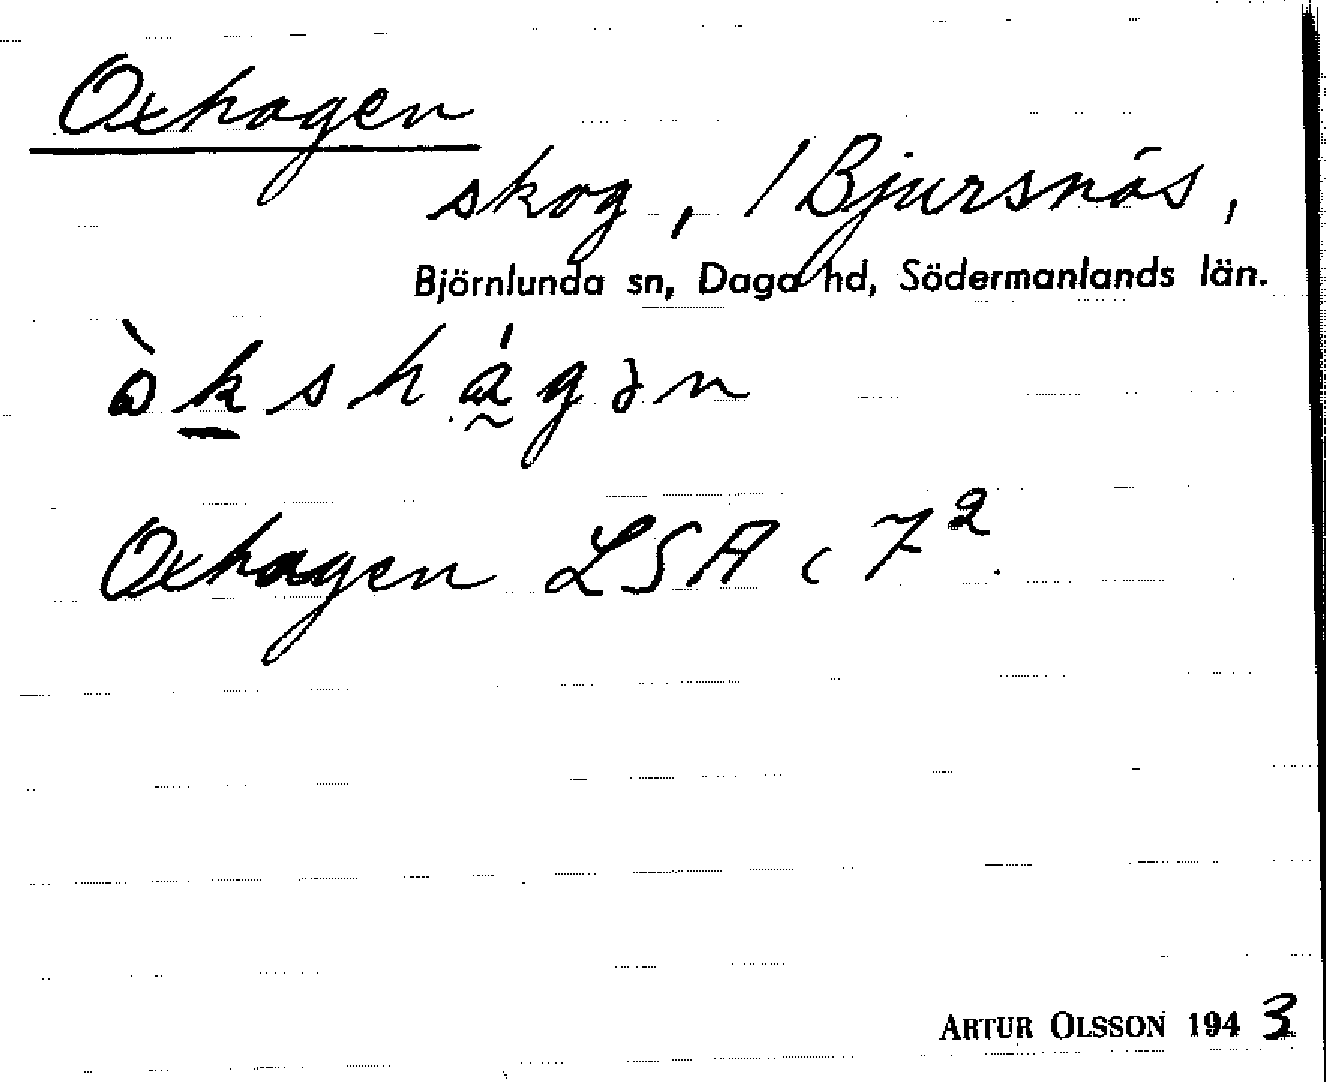 Oxhagen
skog, /Bjursnäs,
Björnlunda sn, Daga hd, Södermanlands län.
òkshágən
Oxhagen LSA c 7²
ARTUR OLSSON 1943